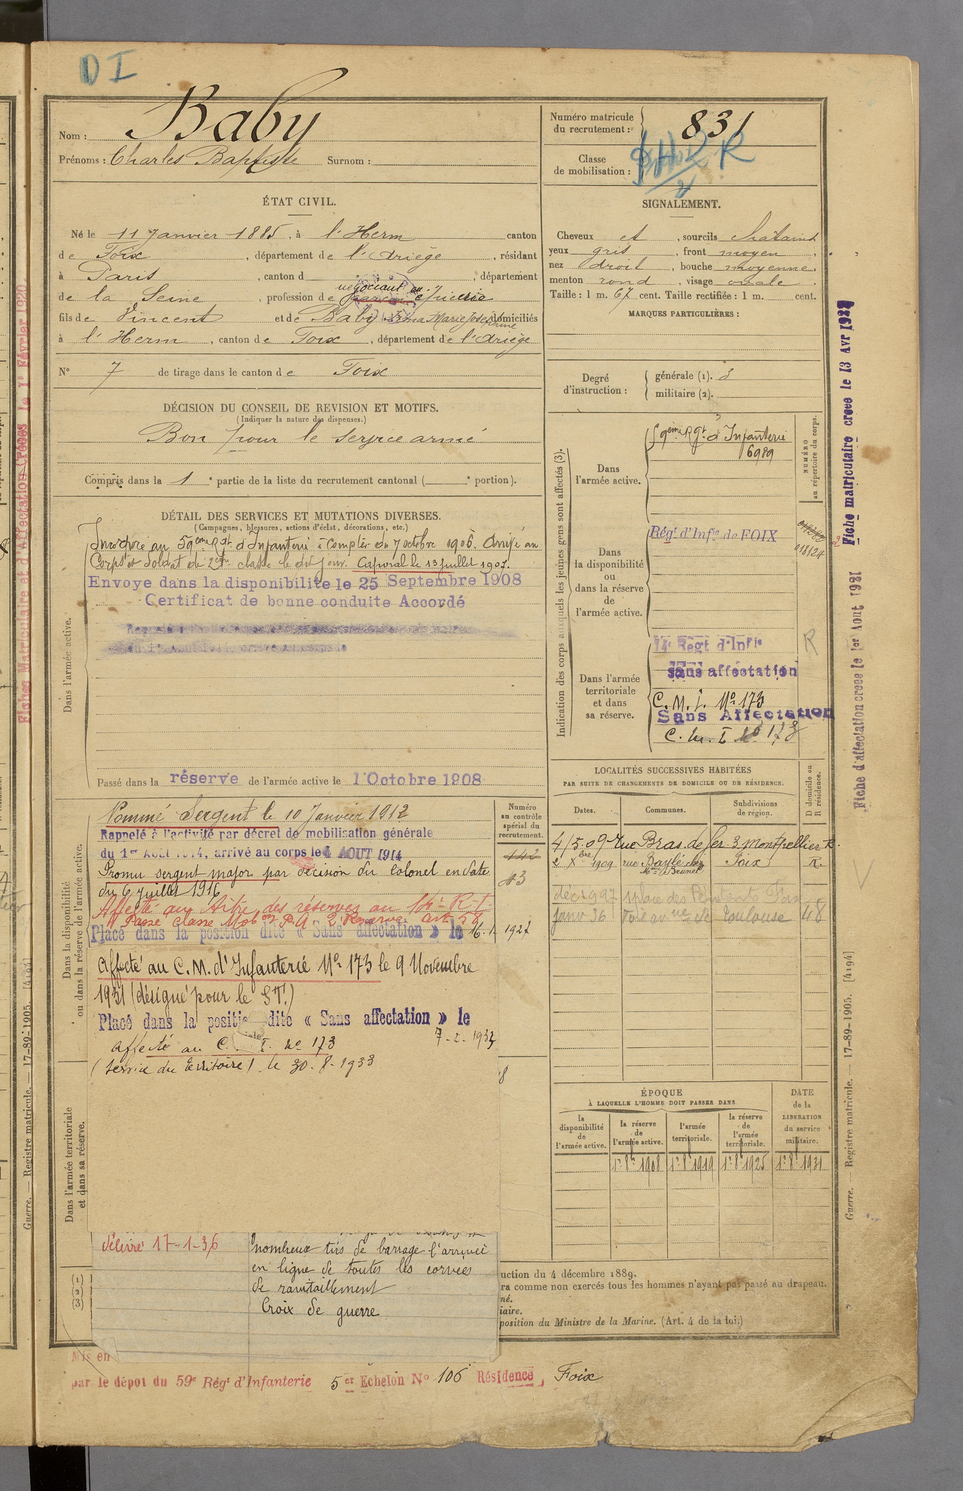 DI
Nom : Baby
Prénoms : Charles Baptiste Surnom :
Numéro matricule du recrutement : 831
Classe de mobilisation : R
ÉTAT CIVIL.
Né le 11 Janvier 1885, à l'Herm canton
de Foix, département de l'Ariège, résidant
à Paris, canton d , département
négociant en
de la Seine, profession de
fils de Vincent et de Baby Marie domiciliés
à l'Herm, canton de Foix, département de l'Ariège
N° 7 de tirage dans le canton de Foix
SIGNALEMENT.
Cheveux et, sourcils châtains
yeux gris, front moyen,
nez droit, bouche moyenne,
menton rond, visage ovale.
Taille : 1 m. 67 cent. Taille rectifiée : 1 m. cent.
MARQUES PARTICULIÈRES :
Degré d'instruction : générale (1). 3
militaire (2).
DÉCISION DU CONSEIL DE REVISION ET MOTIFS.
(Indiquer la nature des dispenses.)
Bon pour le service armé
Compris dans la 1e partie de la liste du recrutement cantonal ( e portion).
DÉTAIL DES SERVICES ET MUTATIONS DIVERSES.
(Campagnes, blessures, actions d'éclat, décorations, etc.)
Dans l'armée active.
Incorporé au 59ème Rgt d'Infanterie à compter du 7 octobre 1906. Arrivé au
Corps et soldat de 2e classe le dit jour. Caporal le 13 juillet 1907.
Envoye dans la disponibilité le 25 Septembre 1908
Certificat de bonne conduite Accordé
Passé dans la réserve de l'armée active le 1 Octobre 1908
Indication des corps auxquels les jeunes gens sont affectés (3).
NUMÉRO au répertoire du corps.
Dans l'armée active.
59ème Rgt d'Infanterie
6989
Dans la disponibilité ou dans la réserve de l'armée active.
Régt d'Infie de FOIX
Dans l'armée territoriale et dans sa réserve.
14e Régt d'Infie
sans affectation
C.M.I. No 173
Sans Affectation
C.M.I. No 173
R
Dans la disponibilité ou dans la réserve de l'armée active.
Numéro au contrôle spécial du recrutement.
142
43
Nommé Sergent le 10 Janvier 1912
Rappelé à l'activité par décret de mobilisation générale
du 1er Août 1914, arrivé au corps le 4 AOUT 1914
Promu sergent major par décision du Colonel en date
du 6 juillet 1916
Affecté au titre des réserves au 14e R.I.
Passé classe Mob on 2 Réserve art 58
Placé dans la position dite « Sans affectation » le 16.1.1927
Affecté au C.M. d'Infanterie No 173 le 9 Novembre
1931 (désigné pour le S.T.)
Placé dans la position dite « Sans affectation » le
7-2-1933
Affecté au C. I. No 173
(Service du Territoire) le 30-8-1933
Dans l'armée territoriale et dans sa réserve.
LOCALITÉS SUCCESSIVES HABITÉES
PAR SUITE DE CHANGEMENTS DE DOMICILE OU DE RÉSIDENCE.
Dates. Communes. Subdivisions de région. D domicile ou R résidence.
4/5.09 Rue Bras de fer 3 Montpellier R.
2 Xbre 1909 rue Bayle chez Foix R.
déc 1927 place des
janv 36 avenue de Toulouse
ÉPOQUE
À LAQUELLE L'HOMME DOIT PASSER DANS
DATE de la LIBÉRATION du service militaire.
la disponibilité de l'armée active. la réserve de l'armée active. l'armée territoriale. la réserve de l'armée territoriale.
1er 8bre 1908 1er 8bre 1919 1er 8bre 1925 1er 8bre 1931
délivré 17-1-36
nombreux tirs de barrage l'arrivée
en ligne de toutes les corvées
de ravitaillement
Croix de guerre
(1)
(2)
(3)
uction du 4 décembre 1889.
ra comme non exercés tous les hommes n'ayant pas passé au drapeau.
né.
iaire.
position du Ministre de la Marine. (Art. 4 de la loi.)
Mis en
par le dépôt du 59e Régt d'Infanterie 5er Echelon No 106 Résidence, Foix
Guerre. — Registre matricule. — 17-89-1905. [4194]
Guerre. — Registre matricule. — 17-89-1905. [4194]
Fiche matriculaire créée le 13 Avr 1921
Fiche d'affectation créée le 1er Aout 1921
Fiches Matriculaire et d'Affectation Créées le 1er Février 1920